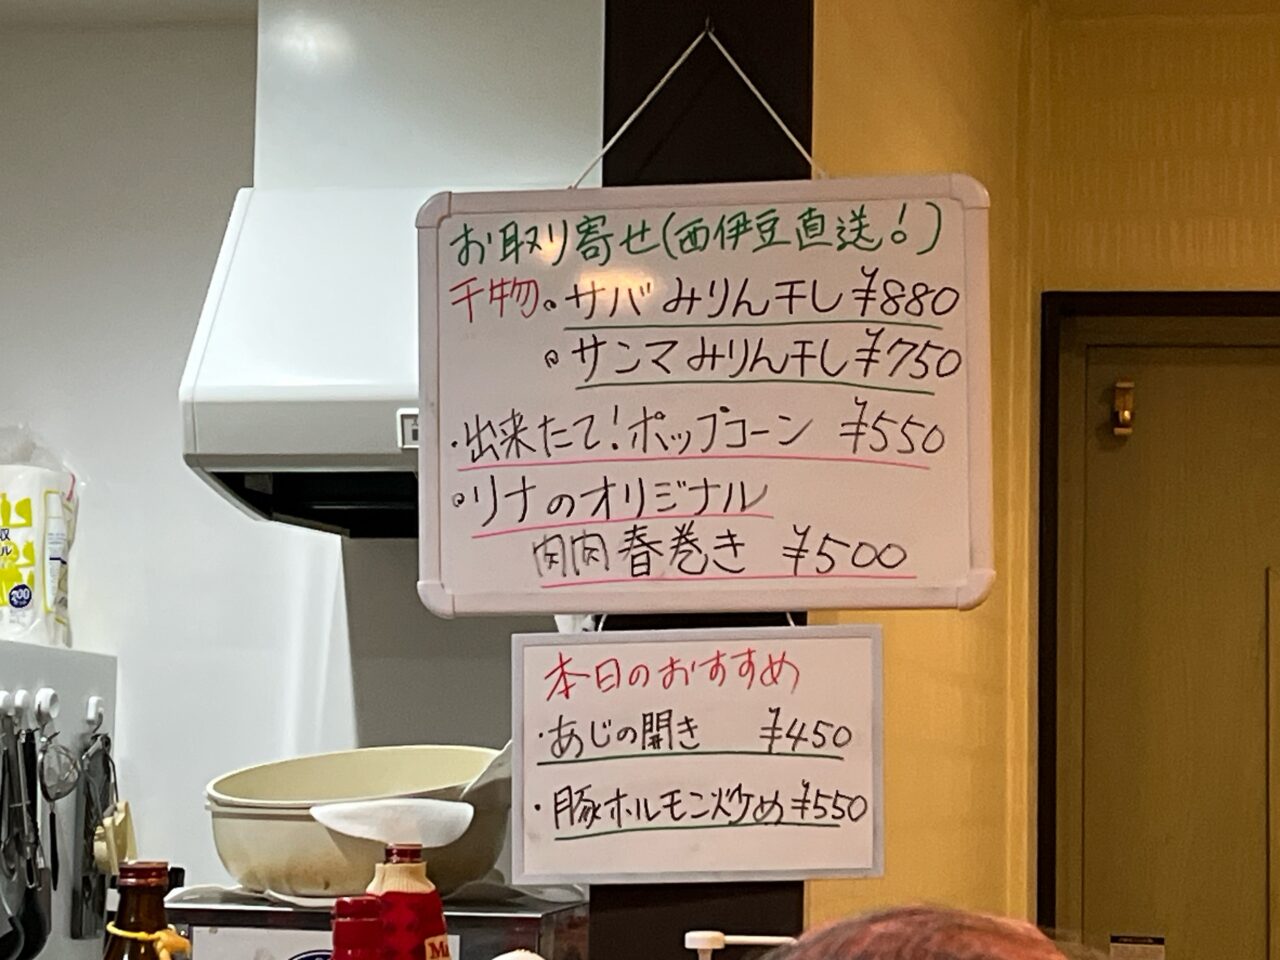 お取り寄せ(西伊豆直送!)
干物。サバみりん干し ¥880
。サンマみりん干し ¥750
・出来たて!ポップコーン ¥550
。リナのオリジナル
肉肉春巻き ¥500
本日のおすすめ
・あじの開き ¥450
・豚ホルモン炒め ¥550